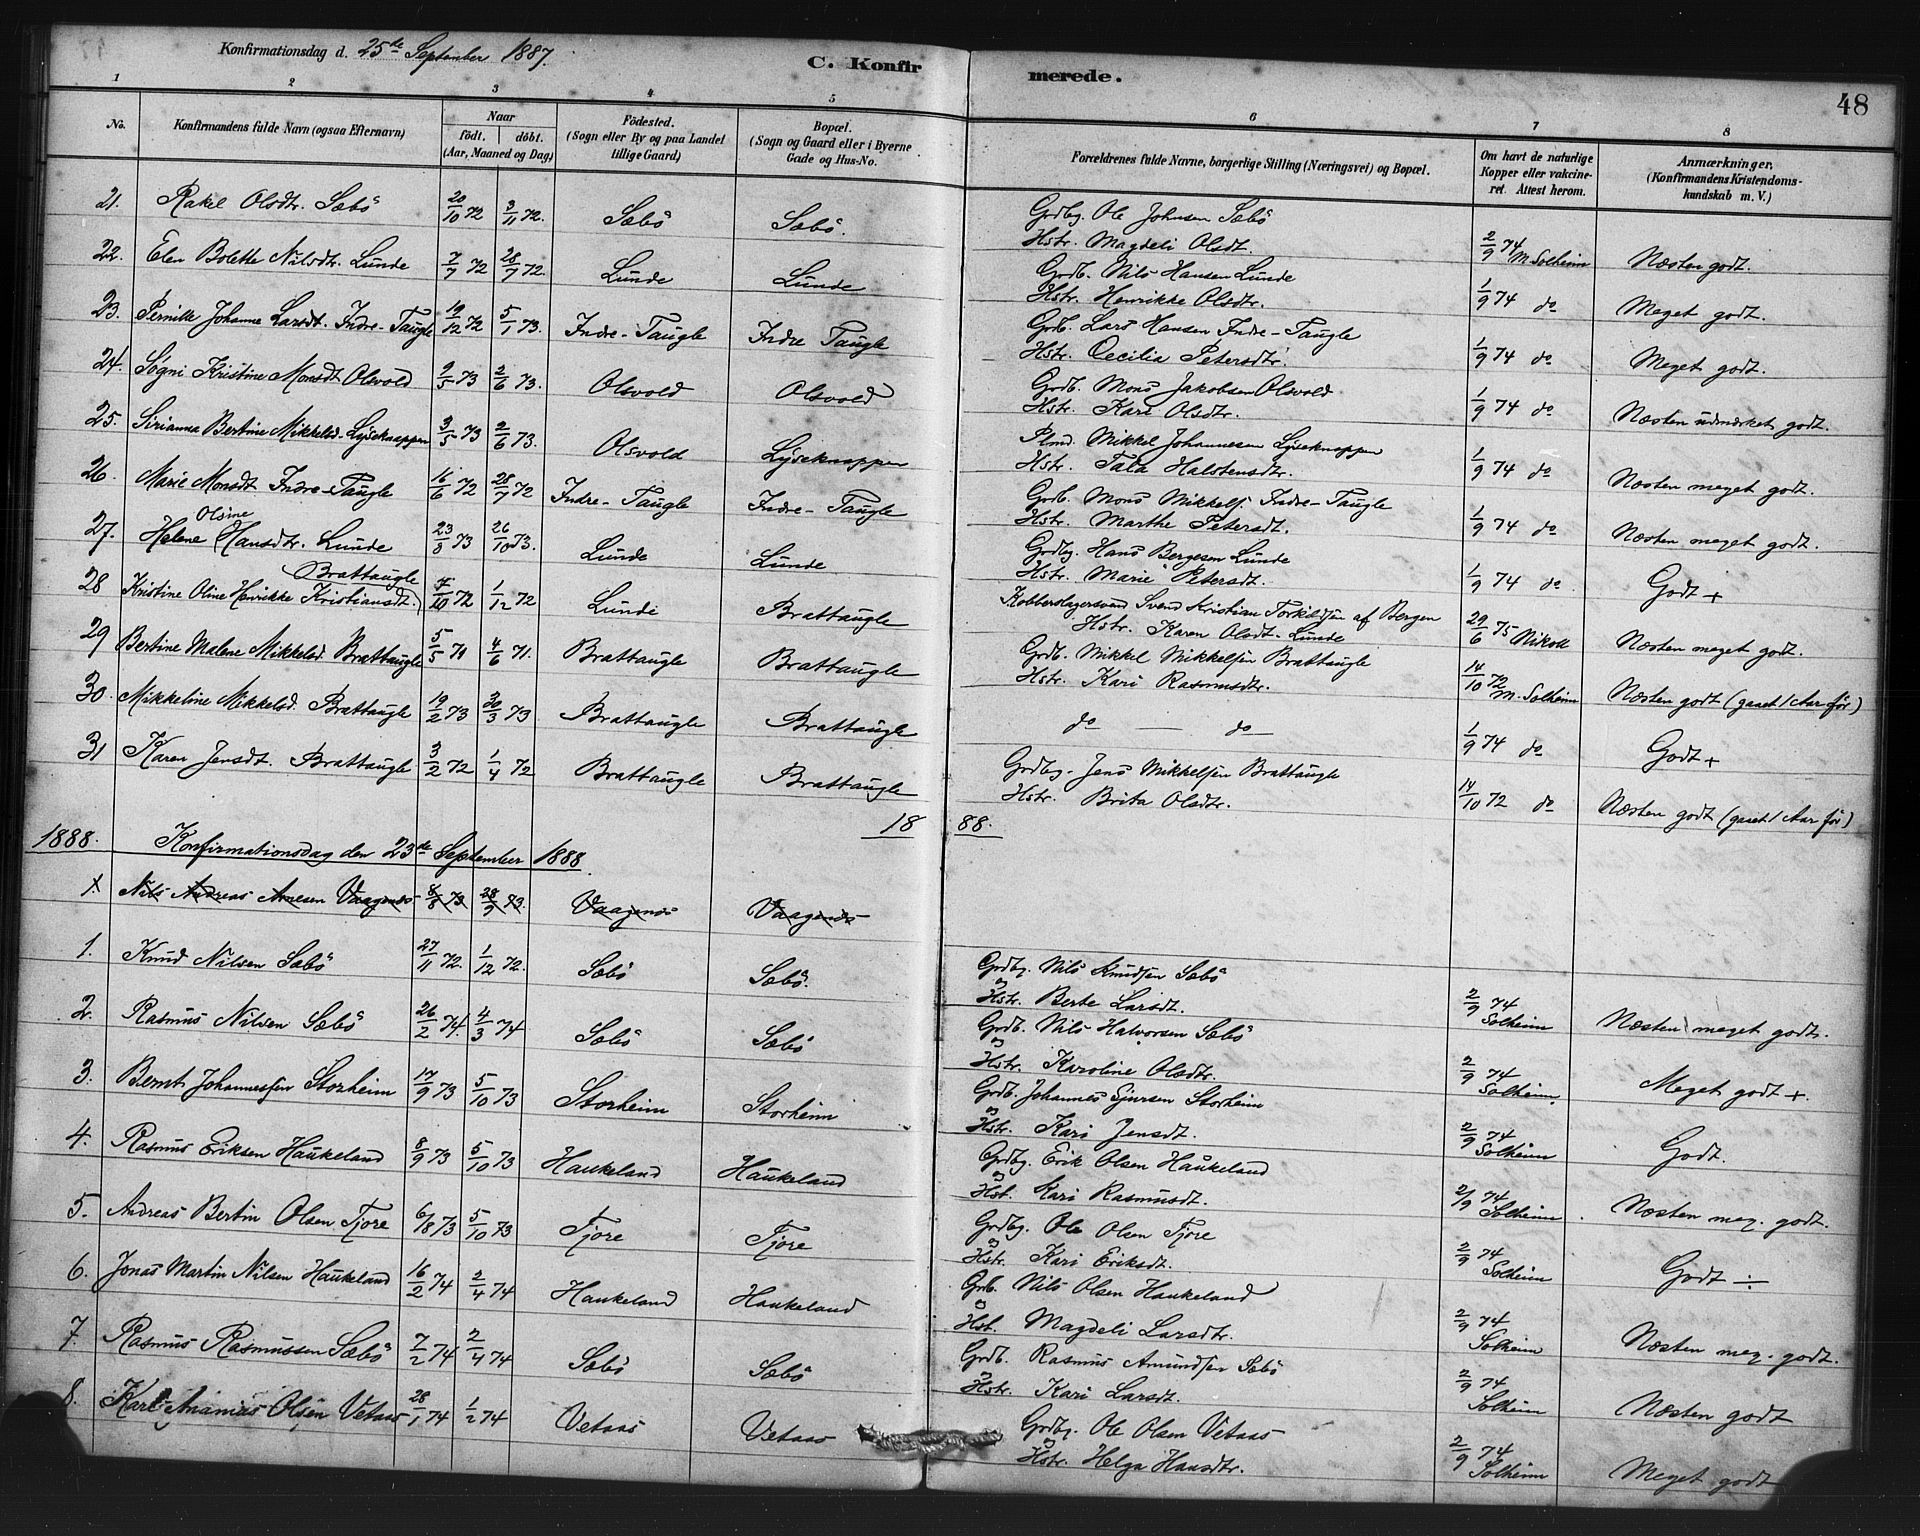 Konfirmationsdag d. 25de September 1887.
C. Konfirmerede.
48
1 2 3 4 5 6 7 8
No.
Konfirmandens fulde Navn (ogsaa Efternavn)
Naar
födt. döbt.
(Aar, Maaned og Dag)
Födested.
(Sogn eller By og paa Landet
tillige Gaard)
Bopæl.
(Sogn og Gaard eller i Byerne
Gade og Hus-No.
Forældrenes fulde Navne, borgerlige Stilling (Næringsvei) og Bopæl.
Om havt de naturlige
Kopper eller vakcine-
ret. Attest herom.
Anmærkninger.
(Konfirmandens Kristendoms-
kundskab m. V.)
21. Rakel Olsdtr. Sæbö 20/10 72 3/11 72. Sæbö Sæbö. Grdbg. Ole Johnsen Sæbö
Hstr. Magdeli Olsdt. 2/9 74 M Solheim Næsten godt.
22. Elen Bolette Nilsdtr. Lunde 7/7 72 28/7 72. Lunde Lunde Grdb. Nils Hansen Lunde
Hstr. Henrikke Olsdtr. 1/9 74 do Meget godt.
23. Pernille Johanne Larsdt. Indre-Taugle 19/12 72 5/1 73. Indre-Taugle Indre Taugle Grdb. Lars Hansen Indre-Taugle
Hstr. Cecilia Petersdtr. 1/9 74 do Meget godt.
24. Søgni Kristine Monsdt Olsvold 9/5 73 2/6 73. Olsvold Olsvold Grdb. Mons Jakobsen Olsvold
Hstr. Kari Olsdtr. 1/9 74 do Næsten udmærket godt.
25. Sirianna Bertine Mikkelsd. Lyseknappen 3/5 73 2/6 73. Olsvold Lyseknappen Plmd. Mikkel Johannesen Lyseknappen
Hstr. Tala Halstensdtr. 1/9 74 do Næsten meget godt.
26. Marie Monsdt. Indre-Taugle 16/6 72 28/7 72 Indre-Taugle Indre-Taugle Grdb. Mons Mikkelsj. Indre-Taugle
Hstr. Marthe Petersdt. 1/9 74 do Næsten meget godt.
27. Helene Olsine Hansdtr. Lunde 23/8 73 26/10 73. Lunde Lunde Grdbg. Hans Bergesen Lunde
Hstr. Marie Petersdt. 1/9 74 do Godt +
28 Kristine Oline Henrikke Kristiansdt. Brattaugle 4/10 72 1/12 72 Lunde Brattaugle Kobberslagersvend Svend Kristian Torkildsen af Bergen
Hstr. Karen Olsdt. Lunde 29/6 75 Nikoll Næsten meget godt.
29 Bertine Malene Mikkelsd. Brattaugle 5/5 71 4/6 71. Brattaugle Brattaugle Grdb. Mikkel Mikkelsen Brattaugle
Hstr. Kari Rasmusdtr. 14/10 72 M. Solheim Næsten godt (gaaet 1 Aar før)
30. Mikkeline Mikkelsd. Brattaugle 19/2 73 30/3 73 Brattaugle Brattaugle do — do 1/9 74 do Godt +
31 Karen Jensdt. Brattaugle 3/2 72 1/4 72 Brattaugle Brattaugle Grdbg. Jens Mikkelsen Brattaugle
Hstr. Brita Olsdtr. 14/10 72 do Næsten godt (gaaet 1 Aar før)
18 88.
1888. Konfirmationsdag den 23de September 1888.
1 Nils Andreas Arnesen Vaagenes 8/8 73 28/9 73. Vaagenes Vaagenes
1. Knud Nilsen Sæbö 27/11 72. 1/12 72. Sæbö Sæbö. Grdbg. Nils Knudsen Sæbö
og Hstr. Berte Larsdt. 2/9 74 Solheim Næsten meget godt.
2. Rasmus Nilsen Sæbö 26/2 74. 4/3 74 Sæbö Sæbö Grdb. Nils Halvorsen Sæbö
og Hstr. Karoline Olsdtr. 2/9 74 Solheim. Meget godt +.
3. Bernt Johannessen Storheim 17/9 73 5/10 73 Storheim Storheim Grdb. Johannes Sjursen Storheim
og Hstr. Kari Jensdt. 2/9 74 Solheim Godt.
4. Rasmus Eriksen Haukeland 8/9 73 5/10 73 Haukeland Haukeland Grdbg. Erik Olsen Haukeland
og Hst. Kari Rasmusdt. 2/9 74 Solheim. Næsten meg. godt.
5. Andreas Bertin Olsen Tjore 6/8 73 5/10 73 Tjore Tjore Grdbg. Ole Olsen Tjore
og Hstr. Kari Eriksdt. 2/9 74 Solheim Godt ÷
6. Jonas Martin Nilsen Haukeland 16/2 74 2/4 74 Haukeland Haukeland Grb. Nils Olsen Haukeland
og Hst. Magdeli Larsdtr. 2/9 74 Solheim Næsten meg. godt.
7. Rasmus Rasmussen Sæbö 7/2 74 2/4 74 Sæbö Sæbö Grdb. Rasmus Amundsen Sæbö
og Hstr. Kari Larsdt. 2/9 74 Solheim Næsten godt
8. Karl Ananias Olsen Vetaas 28/1 74 1/2 74 Vetaas Vetaas Grdbg. Ole Olsen Vetaas
og Hstr. Helga Hansdtr. 2/9 74 Solheim Meget godt